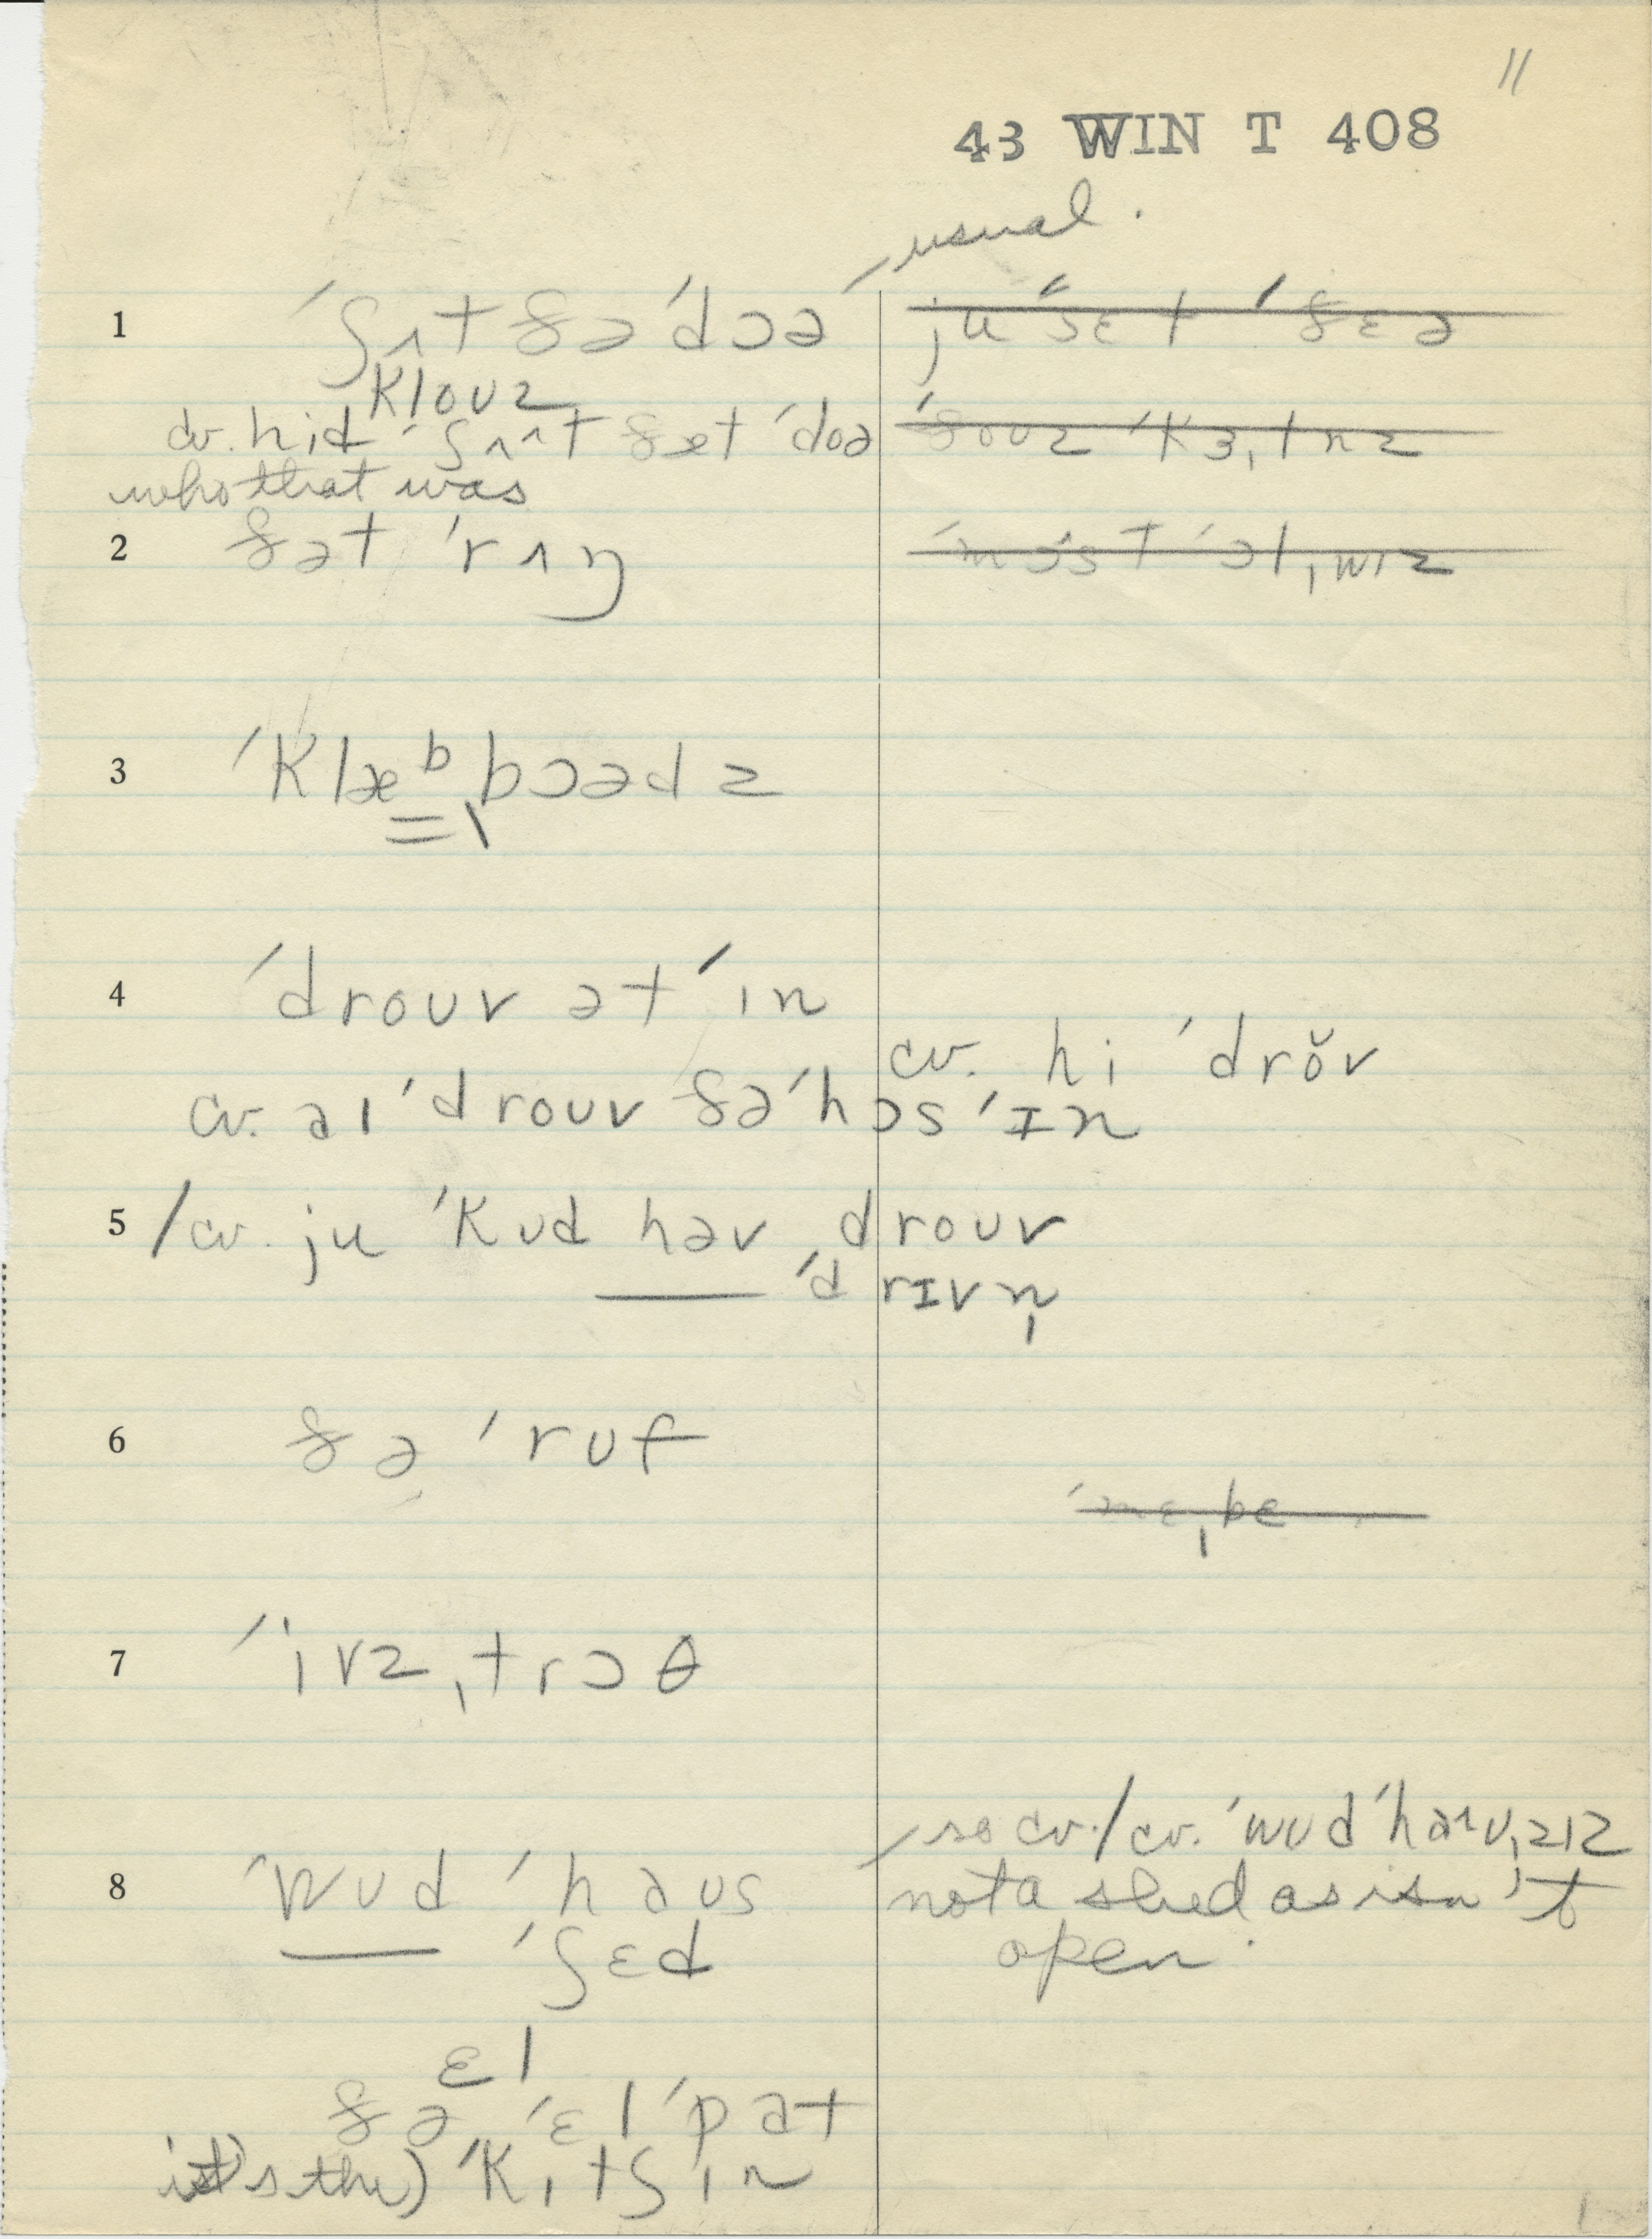 11
43 WIN T 408
usual.
1 ˈʃʌt ðə ˈdɔə
klouz
cv. hid ˈʃʌ^t ðæt ˈdoə
who that was
ju ˈsɛt ˈðɛə
ˈðouz ˈkɜˌtnz
2 ðət ˈrʌŋ
ˈmɔst ˈɔlˌwɪz
3 ˈklæᵇˌbɔədz
4 ˈdrouv ət ˈin
cv. hi ˈdrŏv
cv. aɪ ˈdrouv ðə ˈhɔs ˈɪn
5 /cv. ju ˈkʊd həv ˌdrouv
ˈdrɪvn̩
6 ðə ˈruf
ˈmɛˌbɛ
7 ˈivzˌtrɔθ
/so cv./cv. ˈwʊd ˈhaʊˌzɪz
8 ˈwʊd ˈhaʊs
not a shed as isn't
ˈʃɛd
open.
ɛl
ðə ˈɛl ˈpat
it's the) ˈkɪtʃɪn